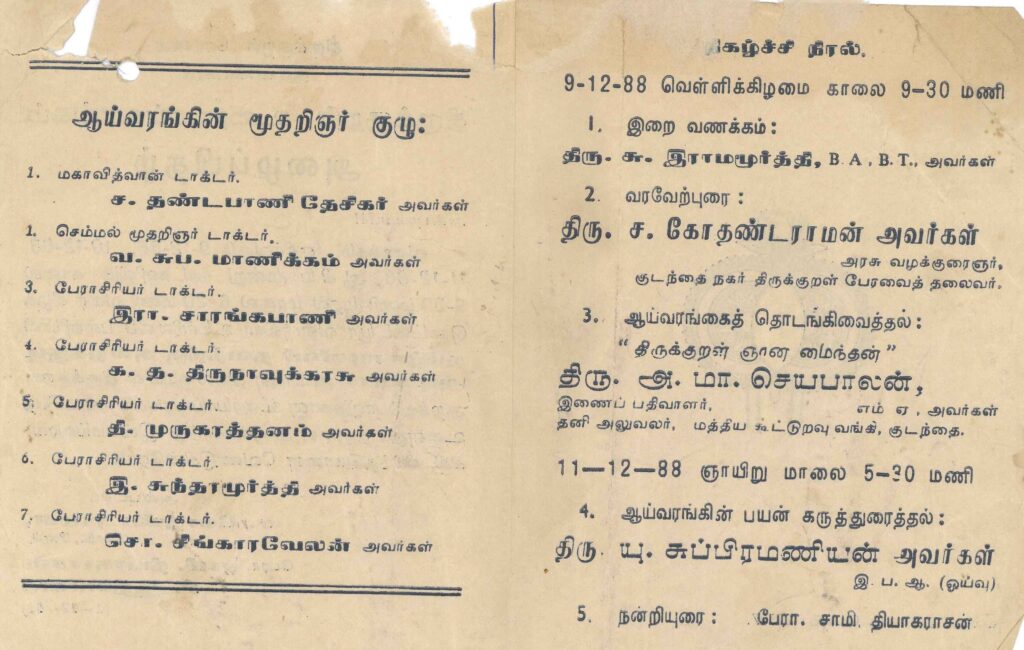 ஆய்வரங்கின் மூதறிஞர் குழு:
1. மகாவித்வான் டாக்டர்.
ச. தண்டபாணி தேசிகர் அவர்கள்
1. செம்மல் மூதறிஞர் டாக்டர்.
வ. சுப. மாணிக்கம் அவர்கள்
3. பேராசிரியர் டாக்டர்.
இரா. சாரங்கபாணி அவர்கள்
4. பேராசிரியர் டாக்டர்.
க. த. திருநாவுக்கரசு அவர்கள்
5. பேராசிரியர் டாக்டர்.
தி. முருகாத்தனம் அவர்கள்
6. பேராசிரியர் டாக்டர்.
இ. சுந்தரமூர்த்தி அவர்கள்
7. பேராசிரியர் டாக்டர்.
சொ. சிங்காரவேலன் அவர்கள்
நிகழ்ச்சி நிரல்.
9-12-88 வெள்ளிக்கிழமை காலை 9-30 மணி
1. இறை வணக்கம்:
திரு. சு. இராமமூர்த்தி, B. A., B. T., அவர்கள்
2. வரவேற்புரை:
திரு. ச. கோதண்டராமன் அவர்கள்
அரசு வழக்குரைஞர்,
குடந்தை நகர் திருக்குறள் பேரவைத் தலைவர்.
3. ஆய்வரங்கைத் தொடங்கிவைத்தல்:
"திருக்குறள் ஞான மைந்தன்"
திரு. அ. மா. செயபாலன்,
இணைப் பதிவாளர், எம் ஏ., அவர்கள்
தனி அலுவலர், மத்திய கூட்டுறவு வங்கி, குடந்தை.
11—12—88 ஞாயிறு மாலை 5-30 மணி
4. ஆய்வரங்கின் பயன் கருத்துரைத்தல்:
திரு யு. சுப்பிரமணியன் அவர்கள்
இ. ப. ஆ. (ஓய்வு)
5. நன்றியுரை: பேரா. சாமி. தியாகராசன்